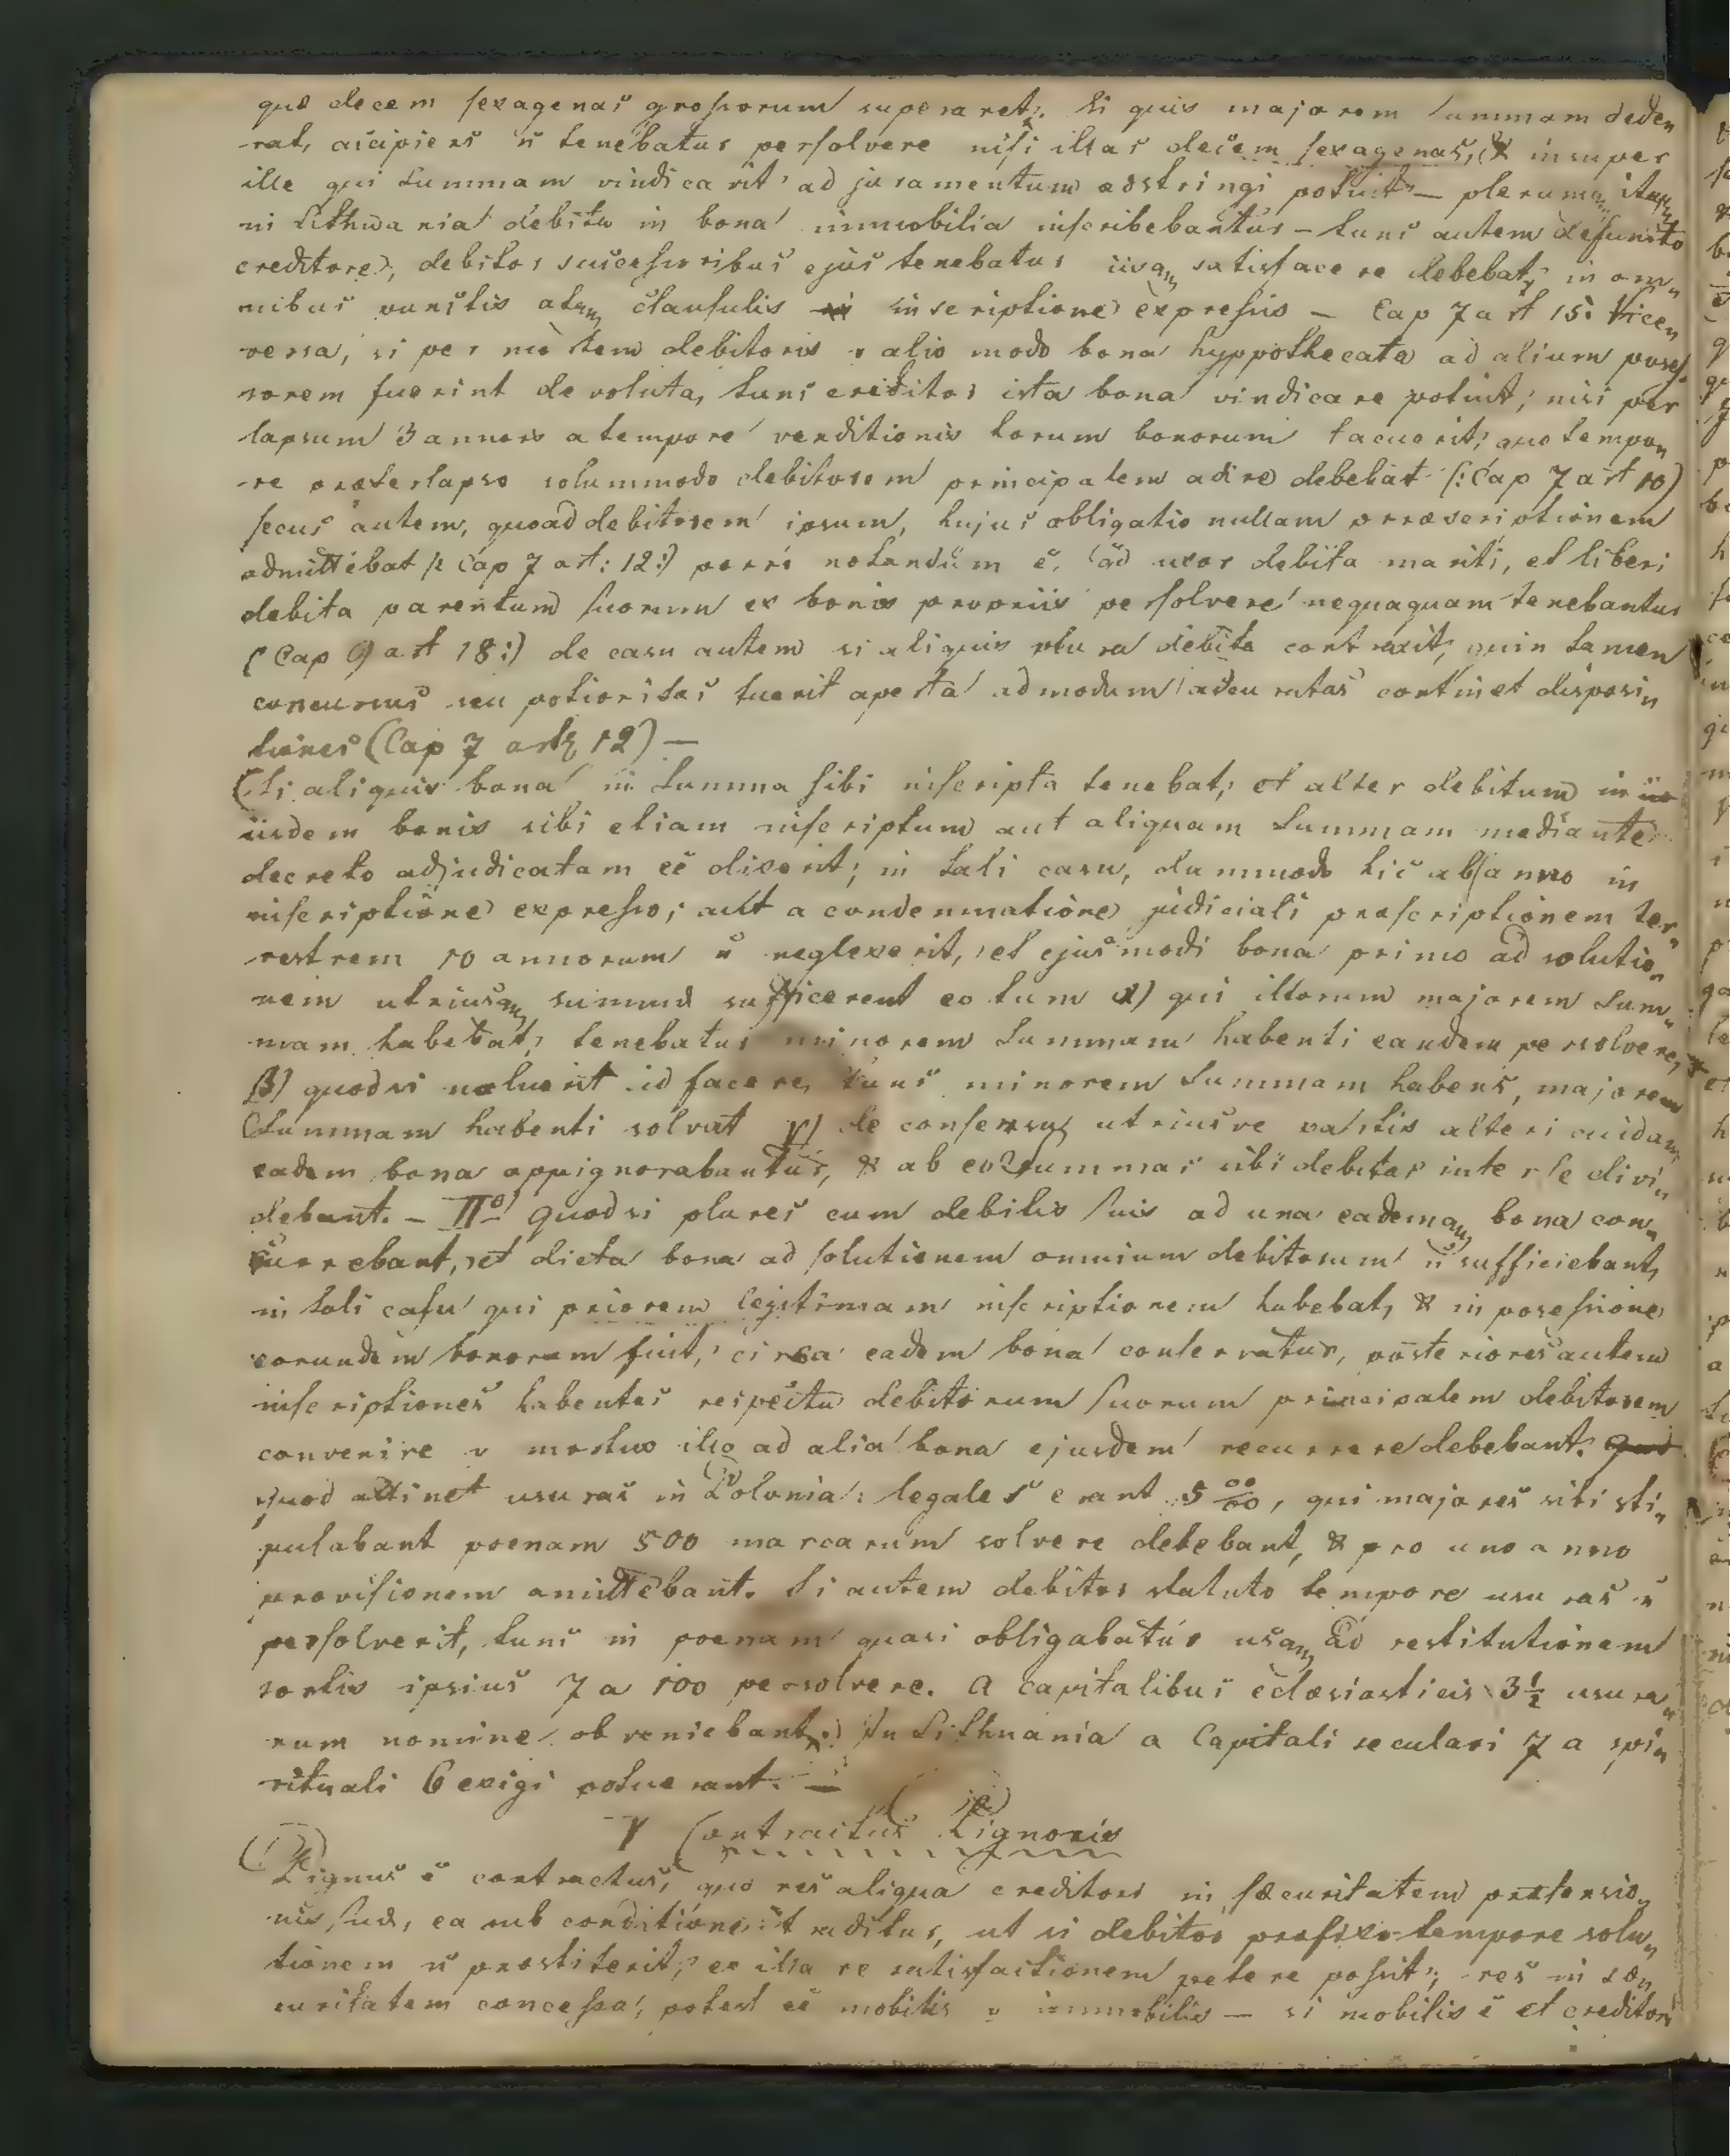 quæ decem sexagenas grossorum superaret. Si quis majorem summam dede„
-rat, accipiens ñ tenebatur persolvere nisi illas decem sexagenas, & insuper
ille qui summam vindicavit ad juramentum adstringi potuit — plerumq„ itaq„
in Lithvania debita in bona immobilia inscribebantur – tunc autem defuncto
creditore, debitor successoribus ejus tenebatur iisq„ satisfacere debebat, in om„
nibus punctis atq„ clausulis inscriptione expressis — Cap 7 art 15. Vice„
versa, si per mortem debitoris v alio modo bona hyppothecata ad alium posses„
sorem fuerint devoluta, tunc creditor ista bona vindicare potuit, nisi per
lapsum 3 annors a tempore venditionis horum bonorum tacuerit, quo tempo„
-re præterlapso solummodo debitorem principalem adire debebat (: Cap 7 art 10)
secus autem, quoad debitorem ipsum, hujus obligatio nullam præscriptionem
admittebat (: Cap 7 art: 12:) porro notandum ē, qd uxor debita mariti, et liberi
debita parentum suorum ex bonis propriis persolvere nequaquam tenebantur
( Cap 9 art 18:) de casu autem si aliquis plura debita contraxit, quin tamen
concursus seu potioritas fuerit aperta admodum accuratas continet disposi„
tiones (Cap 7 art 12) —
Si aliquis bona in summa sibi inscripta tenebat, et alter debitum in
iisdem bonis sibi etiam inscriptum aut aliquam summam mediante
decreto adjudicatam eē dixerit; in tali casu, dummodo hic ab anno in
inscriptione expresso; aut a condemnatione judiciali præscriptionem ter„
restrem 10 annorum ñ neglexerit, et ejusmodi bona primo ad solutio„
nem utriusq„ summæ sufficerent eo tum α) qui illorum majorem sum„
mam habebat, tenebatur minorem summam habenti eandem persolvere,
β) quod si noluerit id facere, tunc minorem summam habens, majorem
summam habenti solvat γ) de consensu utriusve partis alteri cuidam
eadem bona oppignorabantur, & ab eo summas sibi debitas inter se divi„
debant. – IIº quod si plures cum debitis suis ad una eademq„ bona con„
currebant, et dicta bona ad solutionem omnium debitorum ñ sufficiebant,
in tali casu qui priorem legitimam inscriptionem habebat, & in possessione
eorundem bonorum fuit, circa eadem bona conservatur, posteriores autem
inscriptiones habentes respectu debitorum suorum principalem debitorem
convenire v mortuo illo ad alia bona ejusdem recurrere debebant.
Quod attinet usuras in Polonia: legales erant 5 %, qui majores sibi sti„
pulabant poenam 500 marcarum solvere debebant, & pro uno anno
provisionem amittebant. Si autem debitor statuto tempore usuras ñ
persolverit, tunc in poenam quasi obligabatur usq„ ad restitutionem
sortis ipsius 7 a 100 persolvere. a Capitalibus eclæsiasticis 3½ usura„
rum nomine obveniebant. In Lithuania a Capitali seculari 7 a spi„
rituali 6 exigi potuerant. —
γ Contractus Pignoris
Pignus ē contractus, quo res aliqua creditori in sæcuritatem prætensio„
nis suæ, ea sub conditione traditur, ut si debitor præfixo tempore solu„
tionem ñ præstiterit, ex illa re satisfactionem petere possit; res in sæ„
curitatem concessa, potest eē mobilis v immobilis — si mobilis ē et creditori